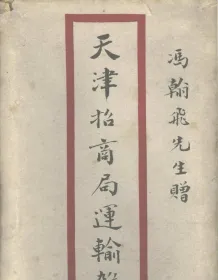 馮翰飛先生贈
天津招商局運輸